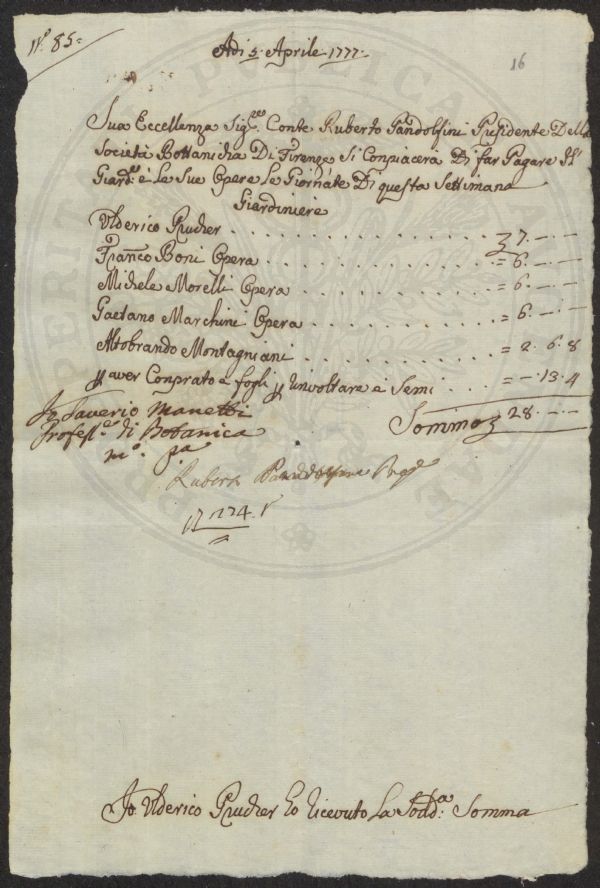 N.° 85=
Adi 5. Aprile. 1777.
16
Sua Eccellenza Sig.re Conte. Ruberto Pandolfini Presidente Della
Società Bottanicha Di Firenze Si Conpiacera Di far Pagare Il
Giard.re è Le Sue Opere Le Giornate Di questa Settimana
Giardiniere
Ulderico Prucher . . . . . . . . . . 7. — . —
Franco Boni Opera . . . . . . . . . = 6. — . —
Michele Morelli Opera . . . . . . . . = 6. — . —
Gaetano Marchini Opera . . . . . . . = 6. — . —
Altobrando Montagniani . . . . . . . = 2. 6. 8
p aver Conprato è fogli p Rinvoltare è Semi . . . = — . 13. 4
Somma 28. — . —
Io Saverio Manetti
Profess.e di Botanica
m.o pa
Ruberto Pandolfini
224.
Io Ulderico Prucher ho ricevuto La Sodd.a Somma